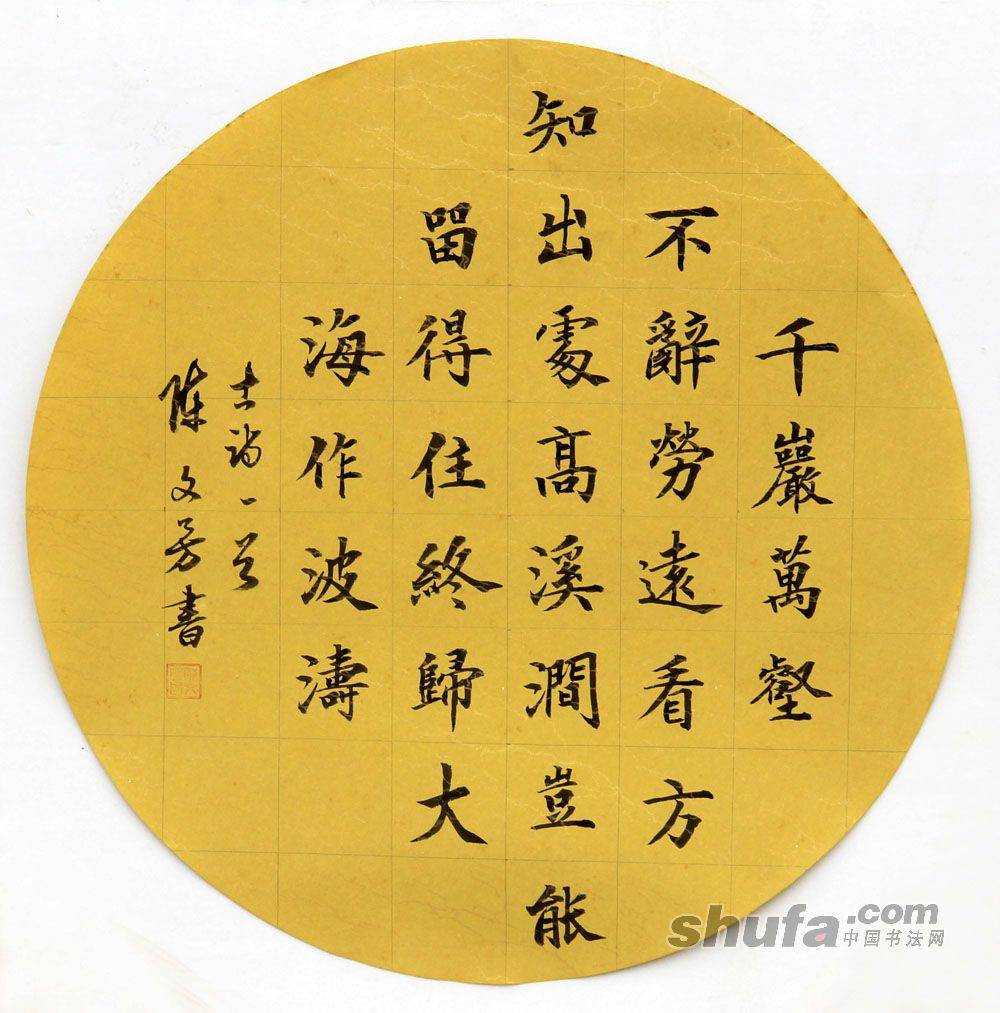 千巖萬壑
不辭勞遠看方
知出處高溪澗豈能
留得住終歸大
海作波濤
古詩一首
陳文芳書
shufa.com
中国书法网